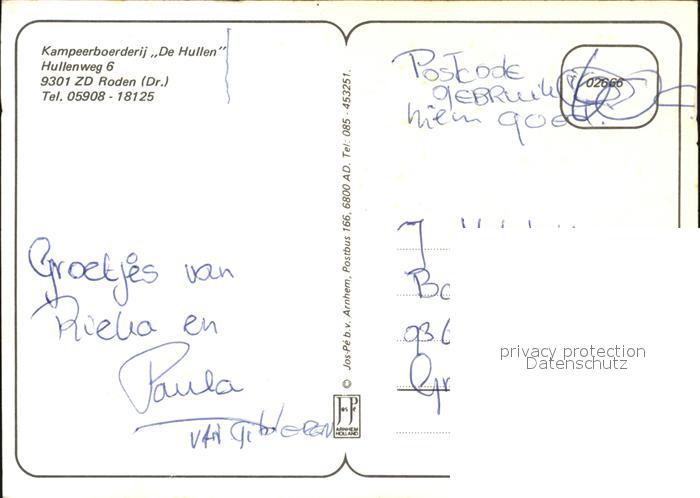 Kampeerboerderij „De Hullen”
Hullenweg 6
9301 ZD Roden (Dr.)
Tel. 05908 - 18125
Groetjes van
en
Paula
© Jos-Pé b.v. Arnhem, Postbus 166, 6800 AD. Tel: 085 - 453251.
Jos Pé
ARNHEM
HOLLAND
Postcode
gebruik
niem goed.
02666
J
Bo
Gr
privacy protection
Datenschutz